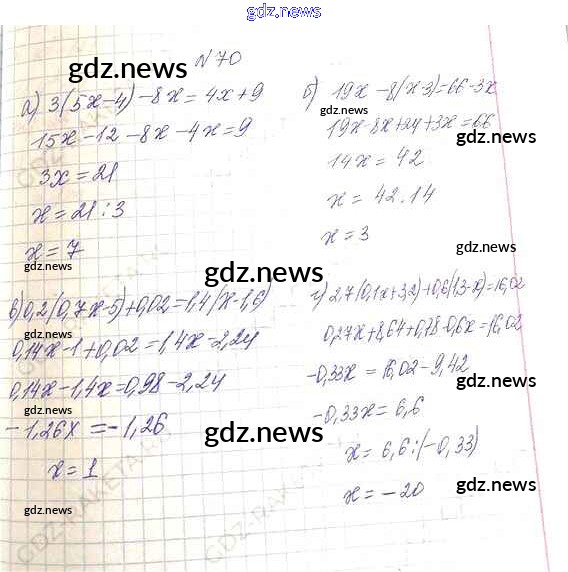 gdz.news
№ 70
а) 3(5x-4)-8x=4x+9
15x-12-8x-4x=9
3x=21
x=21:3
x=7
б) 19x-8(x-3)=66-3x
19x-8x+24+3x=66
14x=42
x=42.14
x=3
в) 0,2(0,7x-5)+0,02=1,4(x-1,6)
0,14x-1+0,02=1,4x-2,24
0,14x-1,4x=0,98-2,24
-1,26x=-1,26
x=1
г) 2,7(0,1x+3,2)+0,6(1,3-x)=16,02
0,27x+8,64+0,78-0,6x=16,02
-0,33x=16,02-9,42
-0,33x=6,6
x=6,6:(-0,33)
x=-20
gdz.news
gdz.news
gdz.news
gdz.news
gdz.news
gdz.news
gdz.news
gdz.news
gdz.news
gdz.news
gdz.news
gdz.news